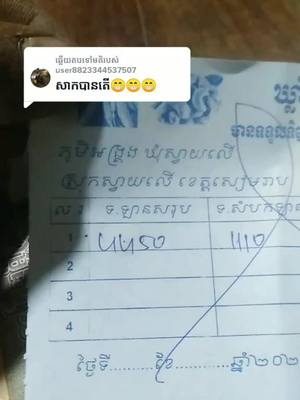 ឆ្លើយតបទៅមតិរបស់
user8823344537507
សាកបានតើ😁😁😁
ឃ្លា
មានទទួលទិ
ភូមិអង្រ្កង ឃុំស្វាយលើ
ស្រុកស្វាយលើ ខេត្តសៀមរាប
ល.រ ទ.ឡានសរុប ទ.សំបកឡាន
1
2
3
4
ថ្ងៃទី..........ខែ..........ឆ្នាំ២០២